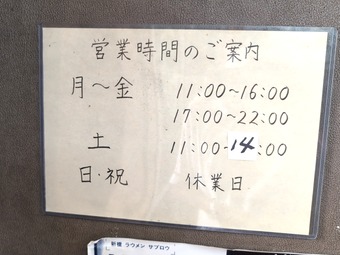 営業時間のご案内
月〜金 11:00〜16:00
17:00〜22:00
土 11:00〜14:00
日・祝 休業日
新橋 ラウメン サブロウ